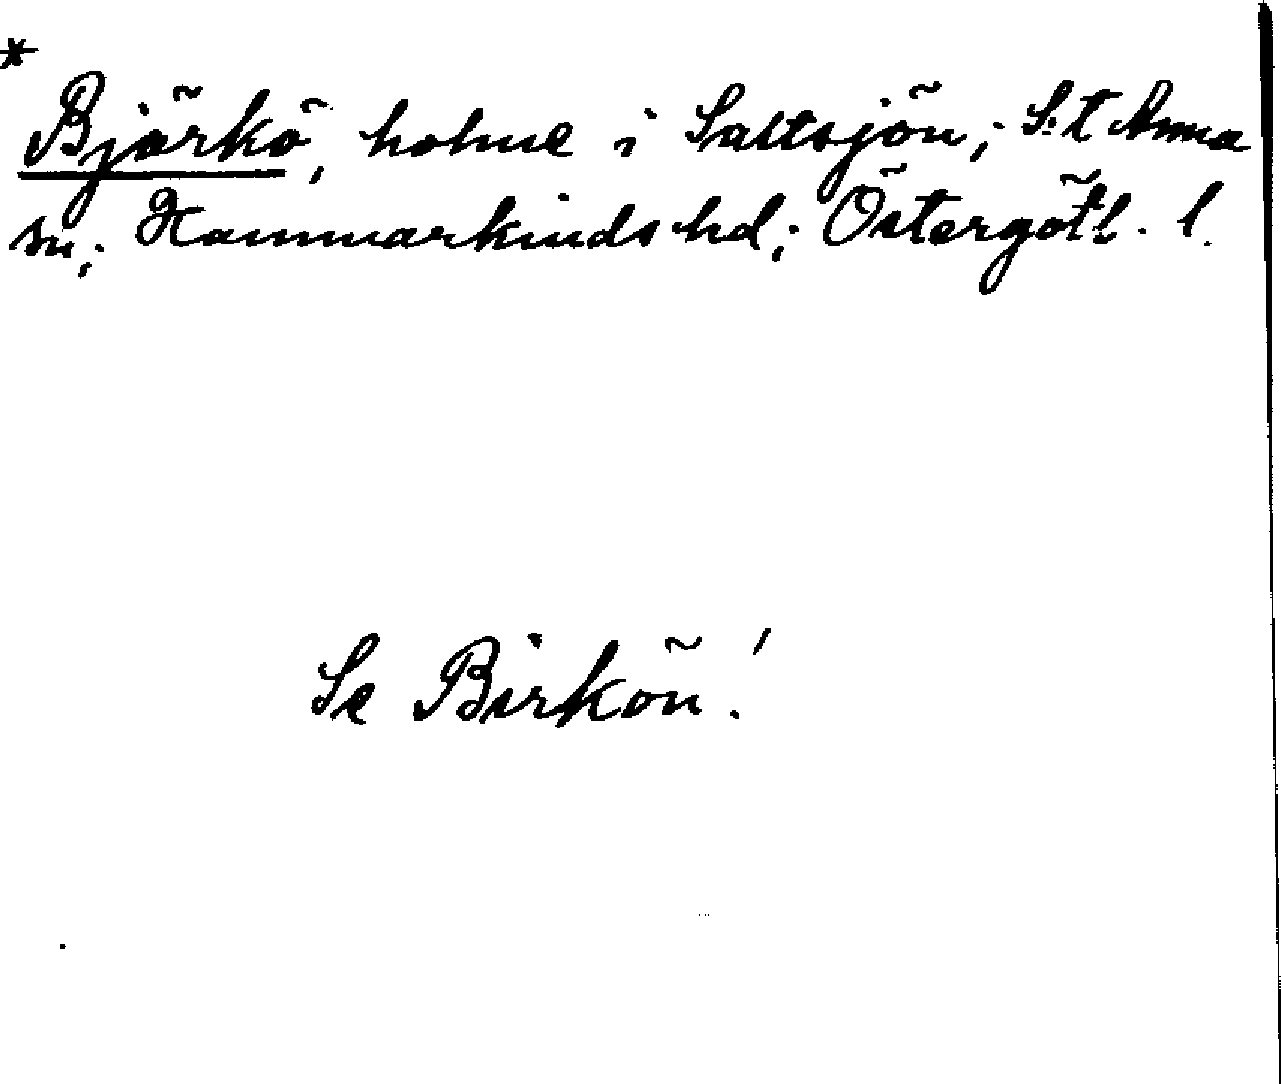 *
Björkö, holme i Saltsjön; S:t Anna
sn; Hammarkinds hd; Östergötl. l.
Se Birkön!